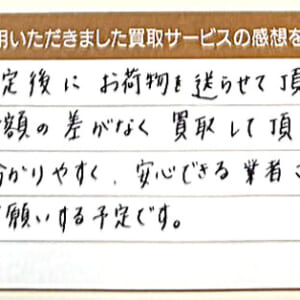 用いただきました買取サービスの感想を
定後に お荷物を送らせて頂
額の差がなく 買取して頂
かりやすく、安心できる業者さ
願いする予定です。